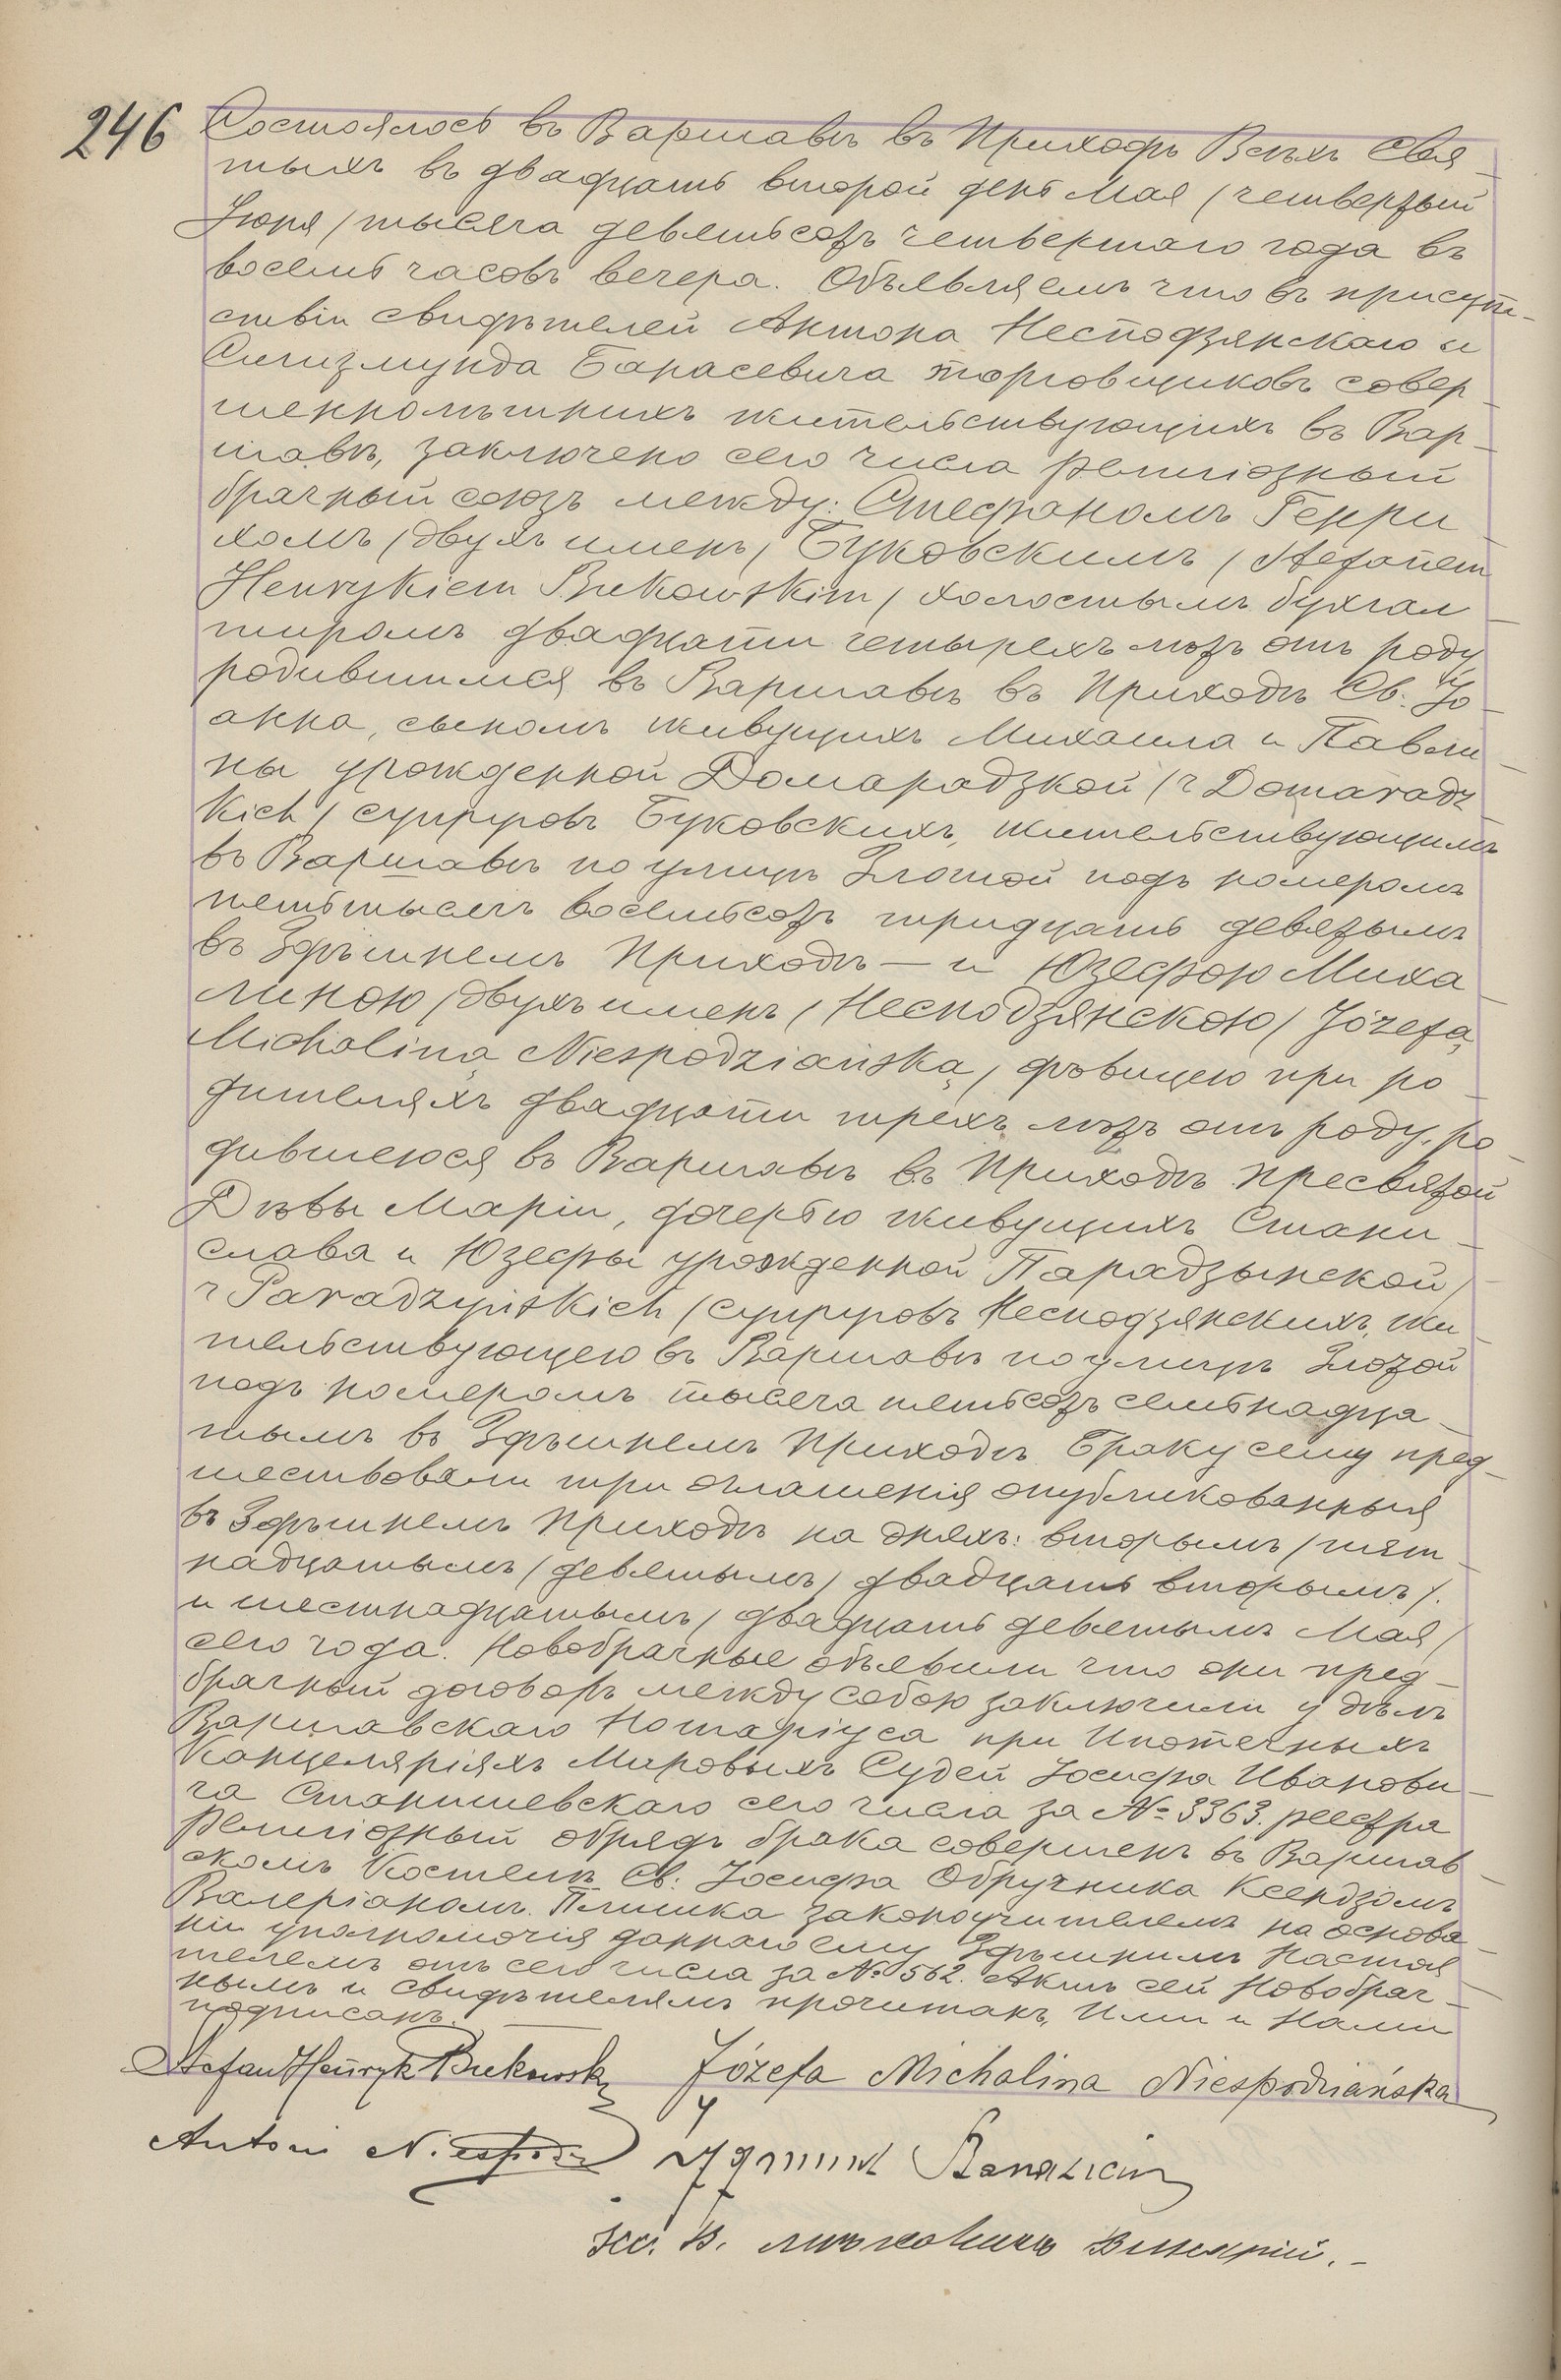 246
Состоялось въ Варшавѣ въ Приходѣ Всѣхъ Свя-
тыхъ въ двадцать второй день Мая /четвертый
Іюня/ тысяча девятьсотъ четвертаго года въ
восемь часовъ вечера. Объявляемъ что въ присут-
ствіи свидѣтелей Антона Несподзянскаго и
Сигизмунда Банасевича торговщиковъ совер-
шеннолѣтнихъ жительствующихъ въ Вар-
шавѣ, заключено сего числа религіозный
брачный союзъ между: Стефаномъ Генри-
хомъ /двухъ именъ/ Буковскимъ /Stefanem
Henrykiem Bukowskim/ холостымъ бухгал-
тиромъ двадцати четырехъ лѣтъ отъ роду
родившимся въ Варшавѣ въ Приходѣ Св. Іо-
анна, сыномъ живущихъ Михаила и Павли-
ны урожденной Домарадзкой /z Domaradz
kich/ супруговъ Буковскихъ, жительствующимъ
въ Варшавѣ по улицѣ Злотой подъ номеромъ
шестьтысячъ восемьсотъ тридцать девятымъ
въ Здѣшнемъ Приходѣ — и Юзефою Миха-
линою /двухъ именъ/ Несподзянскою /Józefą
Michaliną Niespodziańską/ дѣвицею при ро-
дителяхъ двадцати трехъ лѣтъ отъ роду, ро-
дившеюся въ Варшавѣ въ Приходѣ Пресвятой
Дѣвы Маріи, дочерью живущихъ Стани-
слава и Юзефы урожденной Парадзынской /
z Paradzyńskich/ супруговъ Несподзянскихъ, жи-
тельствующею въ Варшавѣ по улицѣ Злотой
подъ номеромъ тысяча шестьсотъ семьнадца-
тымъ въ Здѣшнемъ Приходѣ. Браку сему пред-
шествовали три оглашенія опубликованныя
въ Здѣшнемъ Приходѣ на дняхъ: вторымъ /пят-
надцатымъ/ девятымъ /двадцать вторымъ/.
и шестнадцатымъ /двадцать девятымъ Мая/
сего года. Новобрачные объявили что они пред-
брачный договоръ между собою заключили у дѣлъ
Варшавскаго Нотаріуса при Ипотечныхъ
Канцеляріяхъ Мировыхъ Судей Іосифа Иванови-
ча Станишевскаго сего числа за № 3363. реестра
Религіозный обрядъ брака совершенъ въ Варшав-
скомъ Костелѣ Св. Іосифа Обручника Ксендзомъ
Валеріаномъ Плишка законоучителемъ на основа-
ніи уполномочія даннаго ему Здѣшнимъ Настоя-
телемъ отъ сего числа за № 562. Актъ сей Новобрач-
нымъ и свидѣтелямъ прочитанъ, Ими и Нами
подписанъ.
Stefan Henryk Bukowski Józefa Michalina Niespodziańska
Antoni Niespodz Zygmunt Banasiewicz
Кс. В. Викарій.-